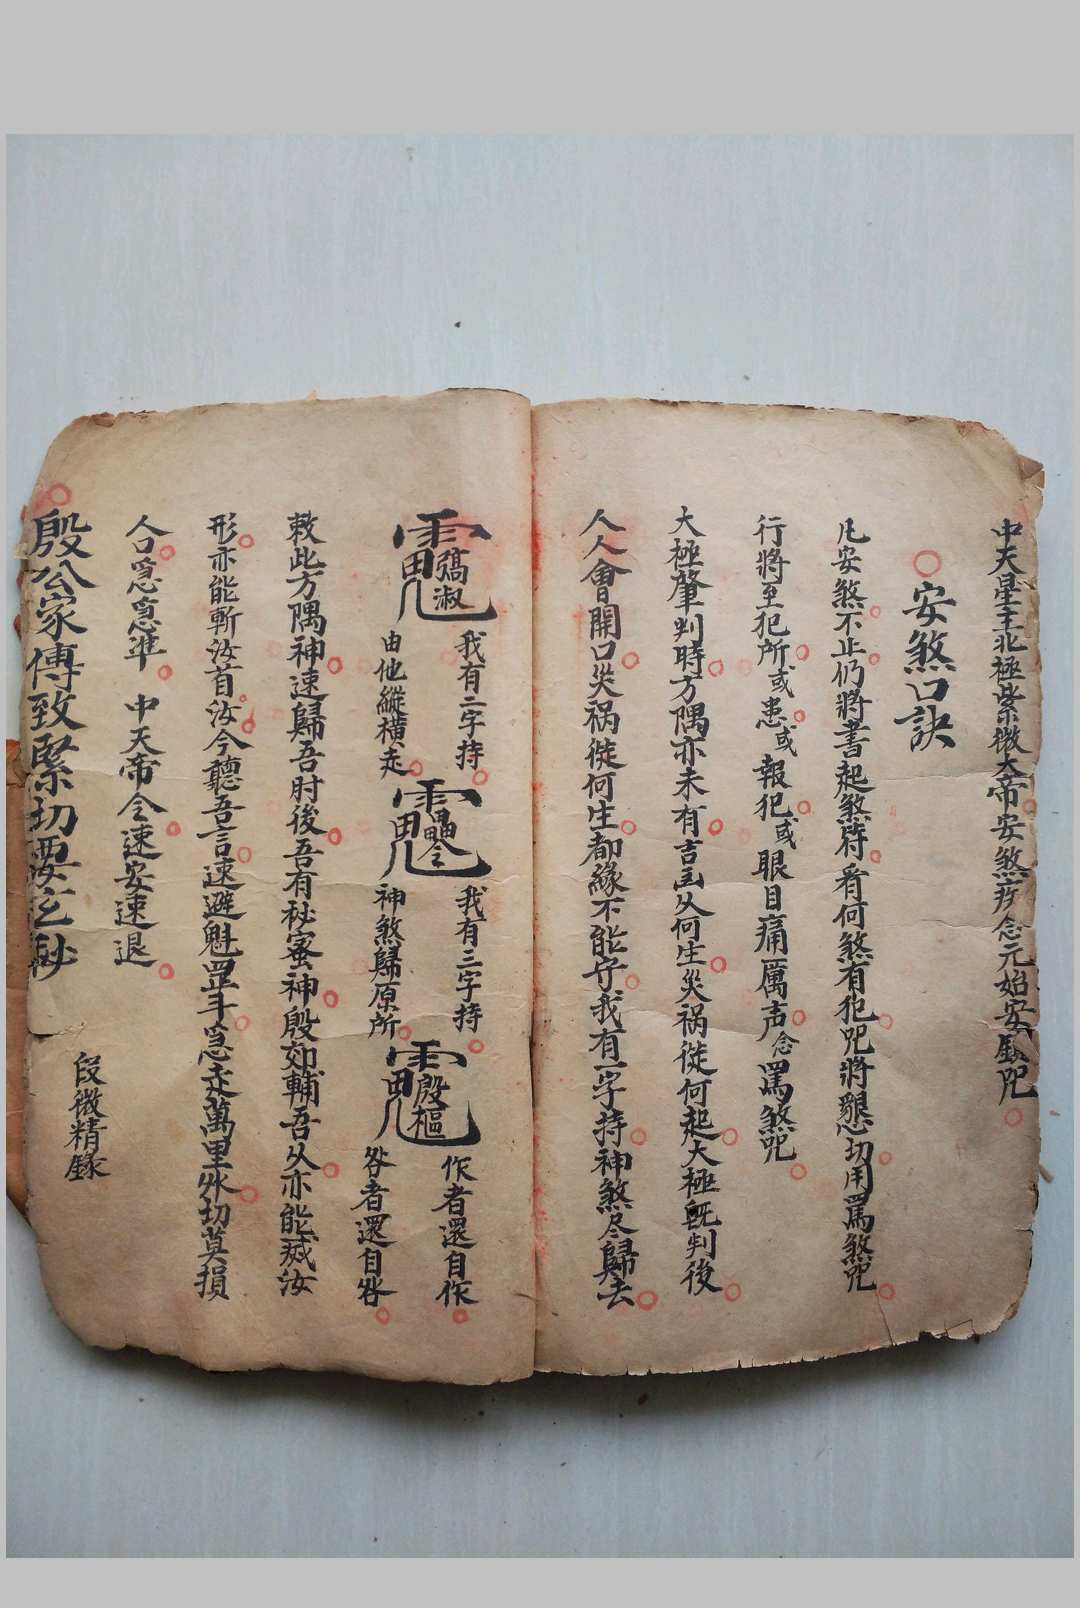 中天星主北極紫微大帝安煞疗念元始安鎮咒
安煞口訣
凡安煞不止仍將書起煞符看何煞有犯咒將懇切用罵煞咒
行將至犯所或患或報犯或眼目痛厲声念罵煞咒
大極肇判時方隅亦未有言凶从何生災禍從何起大極既判後
人人會開口災禍從何生都緣不能守我有一字持神煞尽歸去
我有二字持
由他縱橫走
我有三字持
神煞歸原所
作者還自作
咎者還自咎
敕此方隅神速歸吾肘後吾有秘蜜神殷郊輔吾从亦能滅汝
形亦能斬汝首汝今聽吾言速避魁罡斗急走萬里外切莫損
人口急急準 中天帝令速安速退
殷公家傳致緊切要玄秘
段微精錄